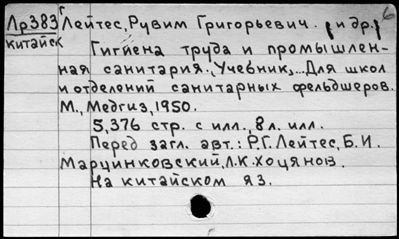 Лр383 Лейтес, Рувим Григорьевич. и др. б
китайск
Гигиена труда и промышлен-
ная санитария., Учебник,... Для школ
и отделений санитарных фельдшеров.
М., Медгиз, 1950.
5,376 стр. с илл., 8 л. илл.
Перед загл. авт.: Р.Г. Лейтес, Б.И.
Марцинковский, Л.К. Хоцянов.
На китайском яз.